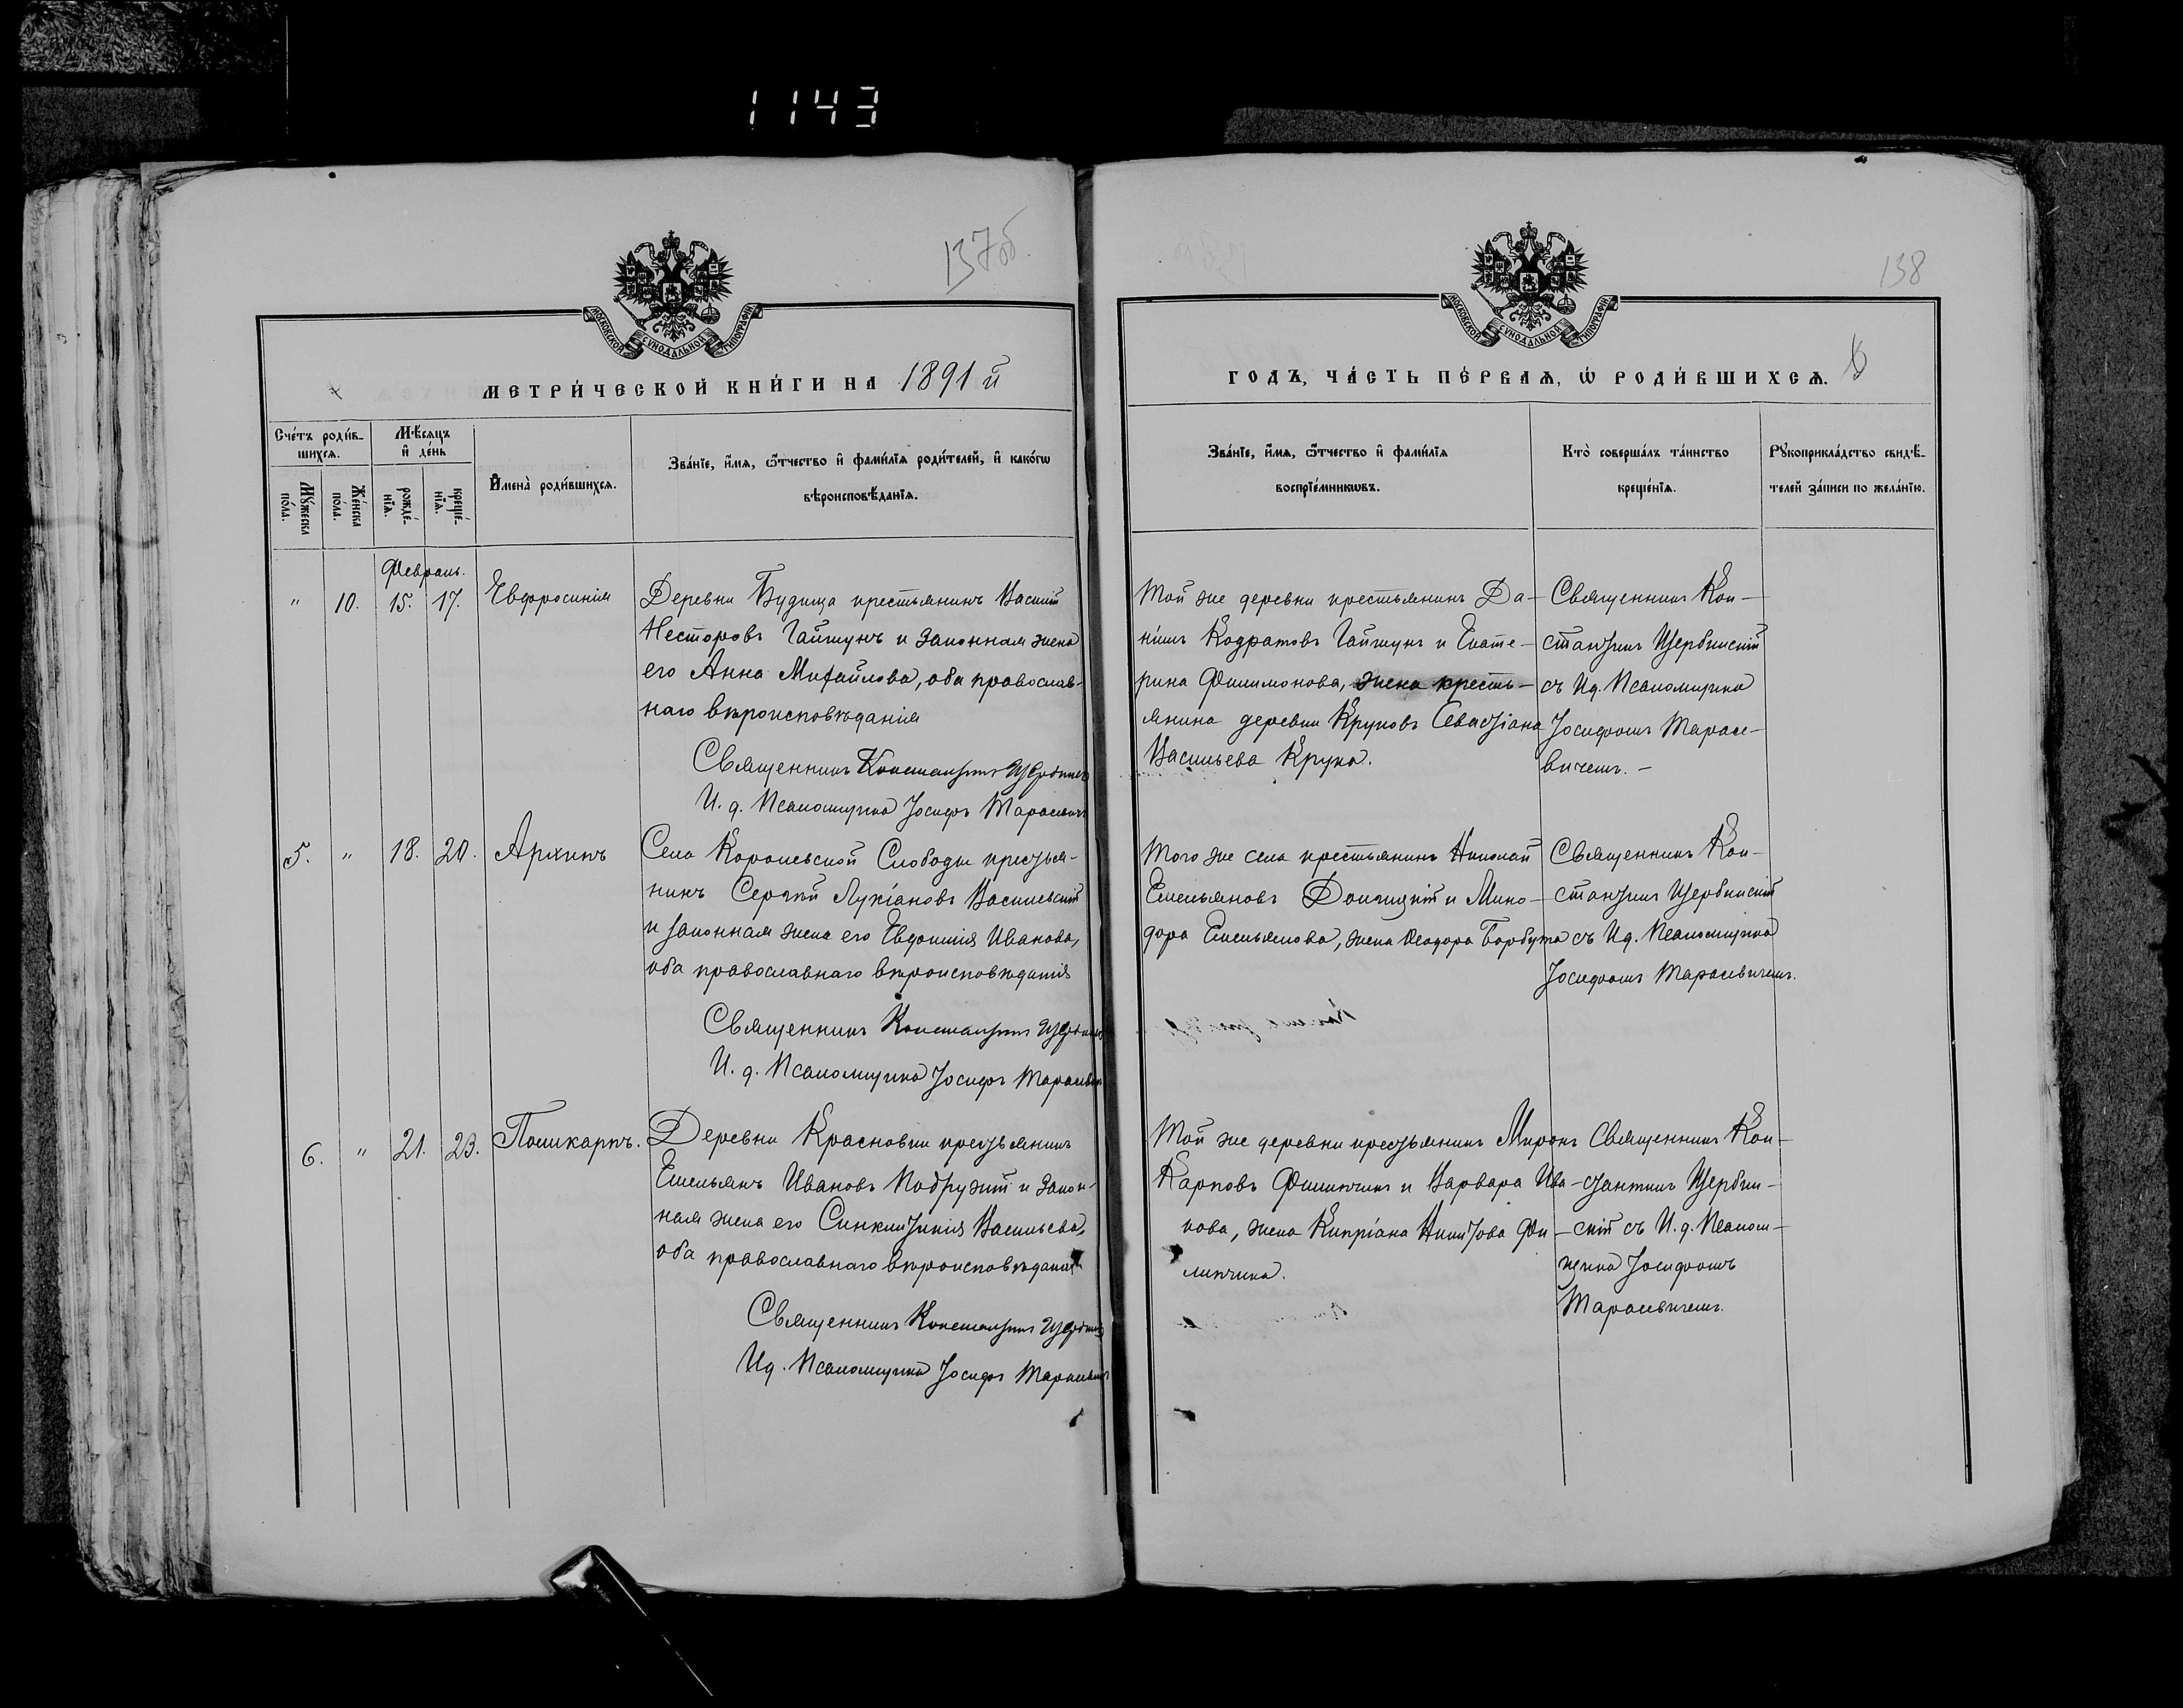 1143
137об.
МОСКОВСКОЙ СѴНОДАЛЬНОЙ ТИПОГРАФІИ
МЕТРИ́ЧЕСКОЙ КНИ́ГИ НА 1891 й
Сче́тъ роди́в-
шихся.
Мѣ́сяцъ
и҆ де́нь
Мꙋ́жеска
по́ла.
Же́нска
по́ла.
рожде́-
нїя.
креще́-
нїя.
И҆мена̀ роди́вшихся.
Зва́нїе, и҆́мя, ѻ҆́тчество и҆ фами́лїя роди́телей, и҆ како́гѡ
вѣроисповѣ́данїя.
Февраль.
" 10. 15. 17. Евфросинія
Деревни Будища крестьянинъ Василій
Несторовъ Гайшунъ и законная жена
его Анна Михайлова, оба православ-
наго вѣроисповѣданія
Священникъ Константинъ Щербинскій
И. д. Псаломщика Іосифъ Тарасевичъ
5. " 18. 20. Архипъ
Села Королевской Слободы крестья-
нинъ Сергѣй Лукіановъ Василевскій
и законная жена его Евдокія Иванова,
оба православнаго вѣроисповѣданія
Священникъ Константинъ Щербинскій
И. д. Псаломщика Іосифъ Тарасевичъ
6. " 21. 23. Поликарпъ.
Деревни Красновки крестьянинъ
Емельянъ Ивановъ и закон-
ная жена его Синклитикія Васильева,
оба православнаго вѣроисповѣданія
Священникъ Константинъ Щербинскій
Ид. Псаломщика Іосифъ Тарасевичъ
138
МОСКОВСКОЙ СѴНОДАЛЬНОЙ ТИПОГРАФІИ
ГОДЪ, ЧА́СТЬ ПЕ́РВАЯ, Ѡ҆ РОДИ́ВШИХСЯ.
Зва́нїе, и҆́мя, ѻ҆́тчество и҆ фами́лїя
воспрїе́мникѡвъ.
Кто̀ соверша́лъ та́инство
креще́нїя.
Рꙋкоприкла́дство свидѣ́-
телей за́писи по жела́нїю.
Той же деревни крестьянинъ Да-
нилъ Кодратовъ Гайшунъ и Екате-
рина Филимонова, жена кресть-
янина деревни Круковъ Севастіана
Васильева Крука.
Священникъ Кон-
стантинъ Щербинскій
съ Ид. Псаломщика
Іосифомъ Тарасе-
вичемъ. -
Того же села крестьянинъ Николай
Емельяновъ и Мино-
дора Емельянова, жена Ѳеодора Борбута
Священникъ Кон-
стантинъ Щербинскій
съ Ид. Псаломщика
Іосифомъ Тарасевичемъ.
Той же деревни крестьянинъ Миронъ
Карповъ Филипчикъ и Варвара Ива-
нова, жена Кипріана Никитова Фи-
липчика.
Священникъ Кон-
стантинъ Щербин-
скій съ И. д. Псалом-
щика Іосифомъ
Тарасевичемъ.